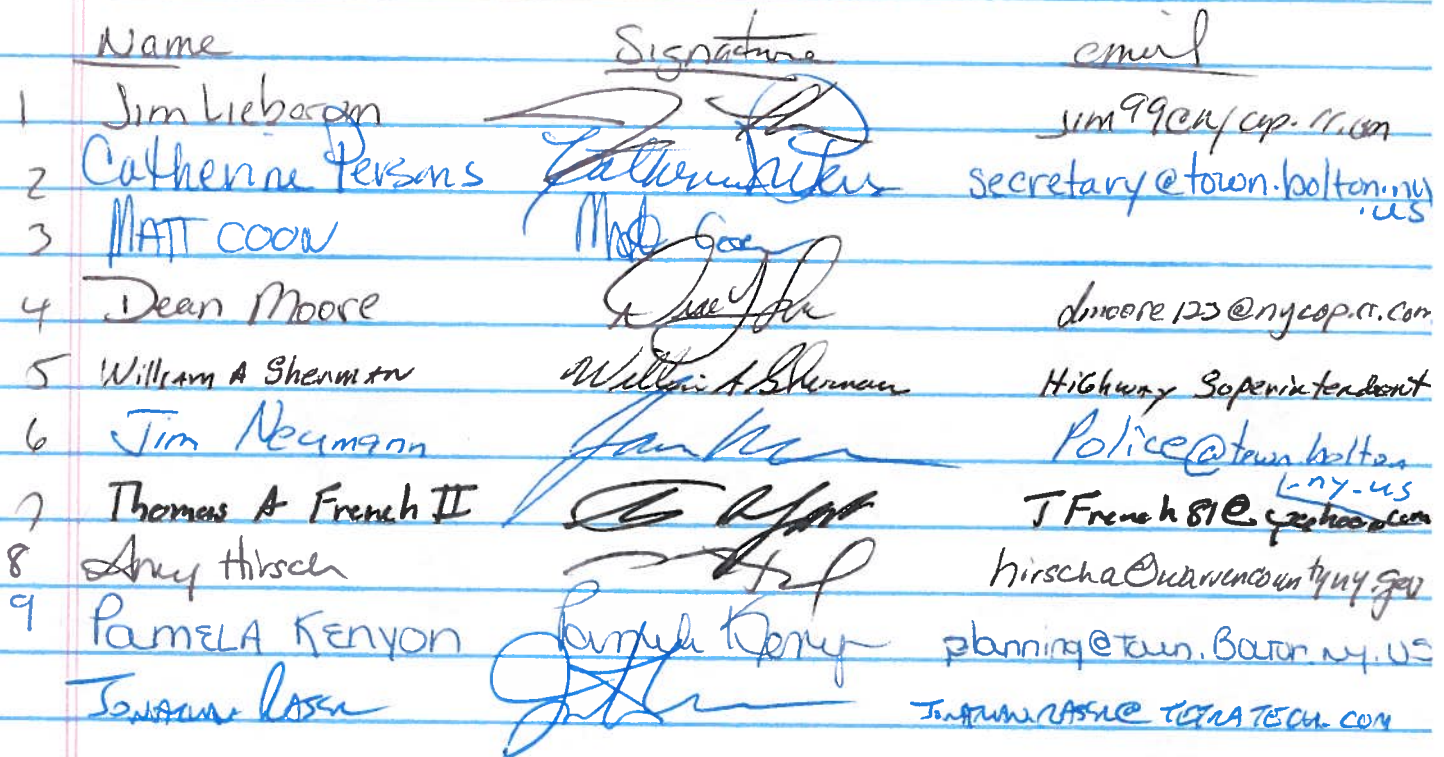 Name Signature email
1 Jim jim99@nycap.rr.com
2 Catherine Persons secretary@town.bolton.ny
.us
3 MATT COON Matt Coon
4 Dean Moore dmoore123@nycap.rr.com
5 William A Sherman William A Sherman Highway Superintendent
6 Jim Neumann Police@town.bolton
.ny.us
7 Thomas A French II TFrench81@yahoo.com
8 Amy Hirsch hirscha@warrencountyny.gov
9 PAMELA KENYON Pamela Kenyon planning@town.Bolton.ny.US
TETRATECH.COM